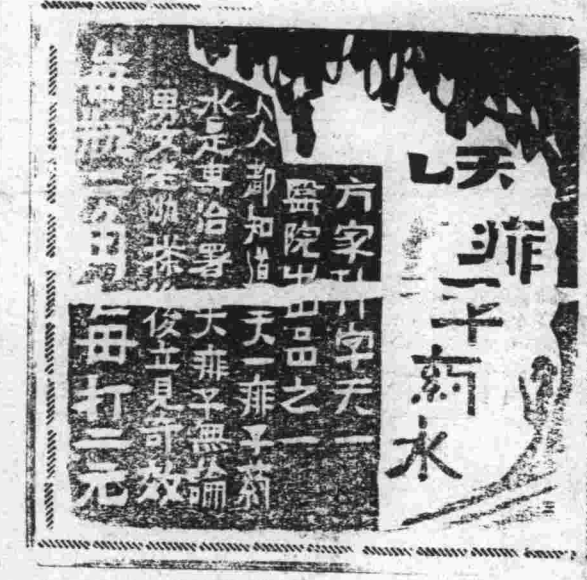 天一痱子药水
方家川字天一
醫院出品之一
人人都知道天一痱子药
水是專治署天痱子無論
男女老幼搽俊立見奇效
每瓶二角每打二元